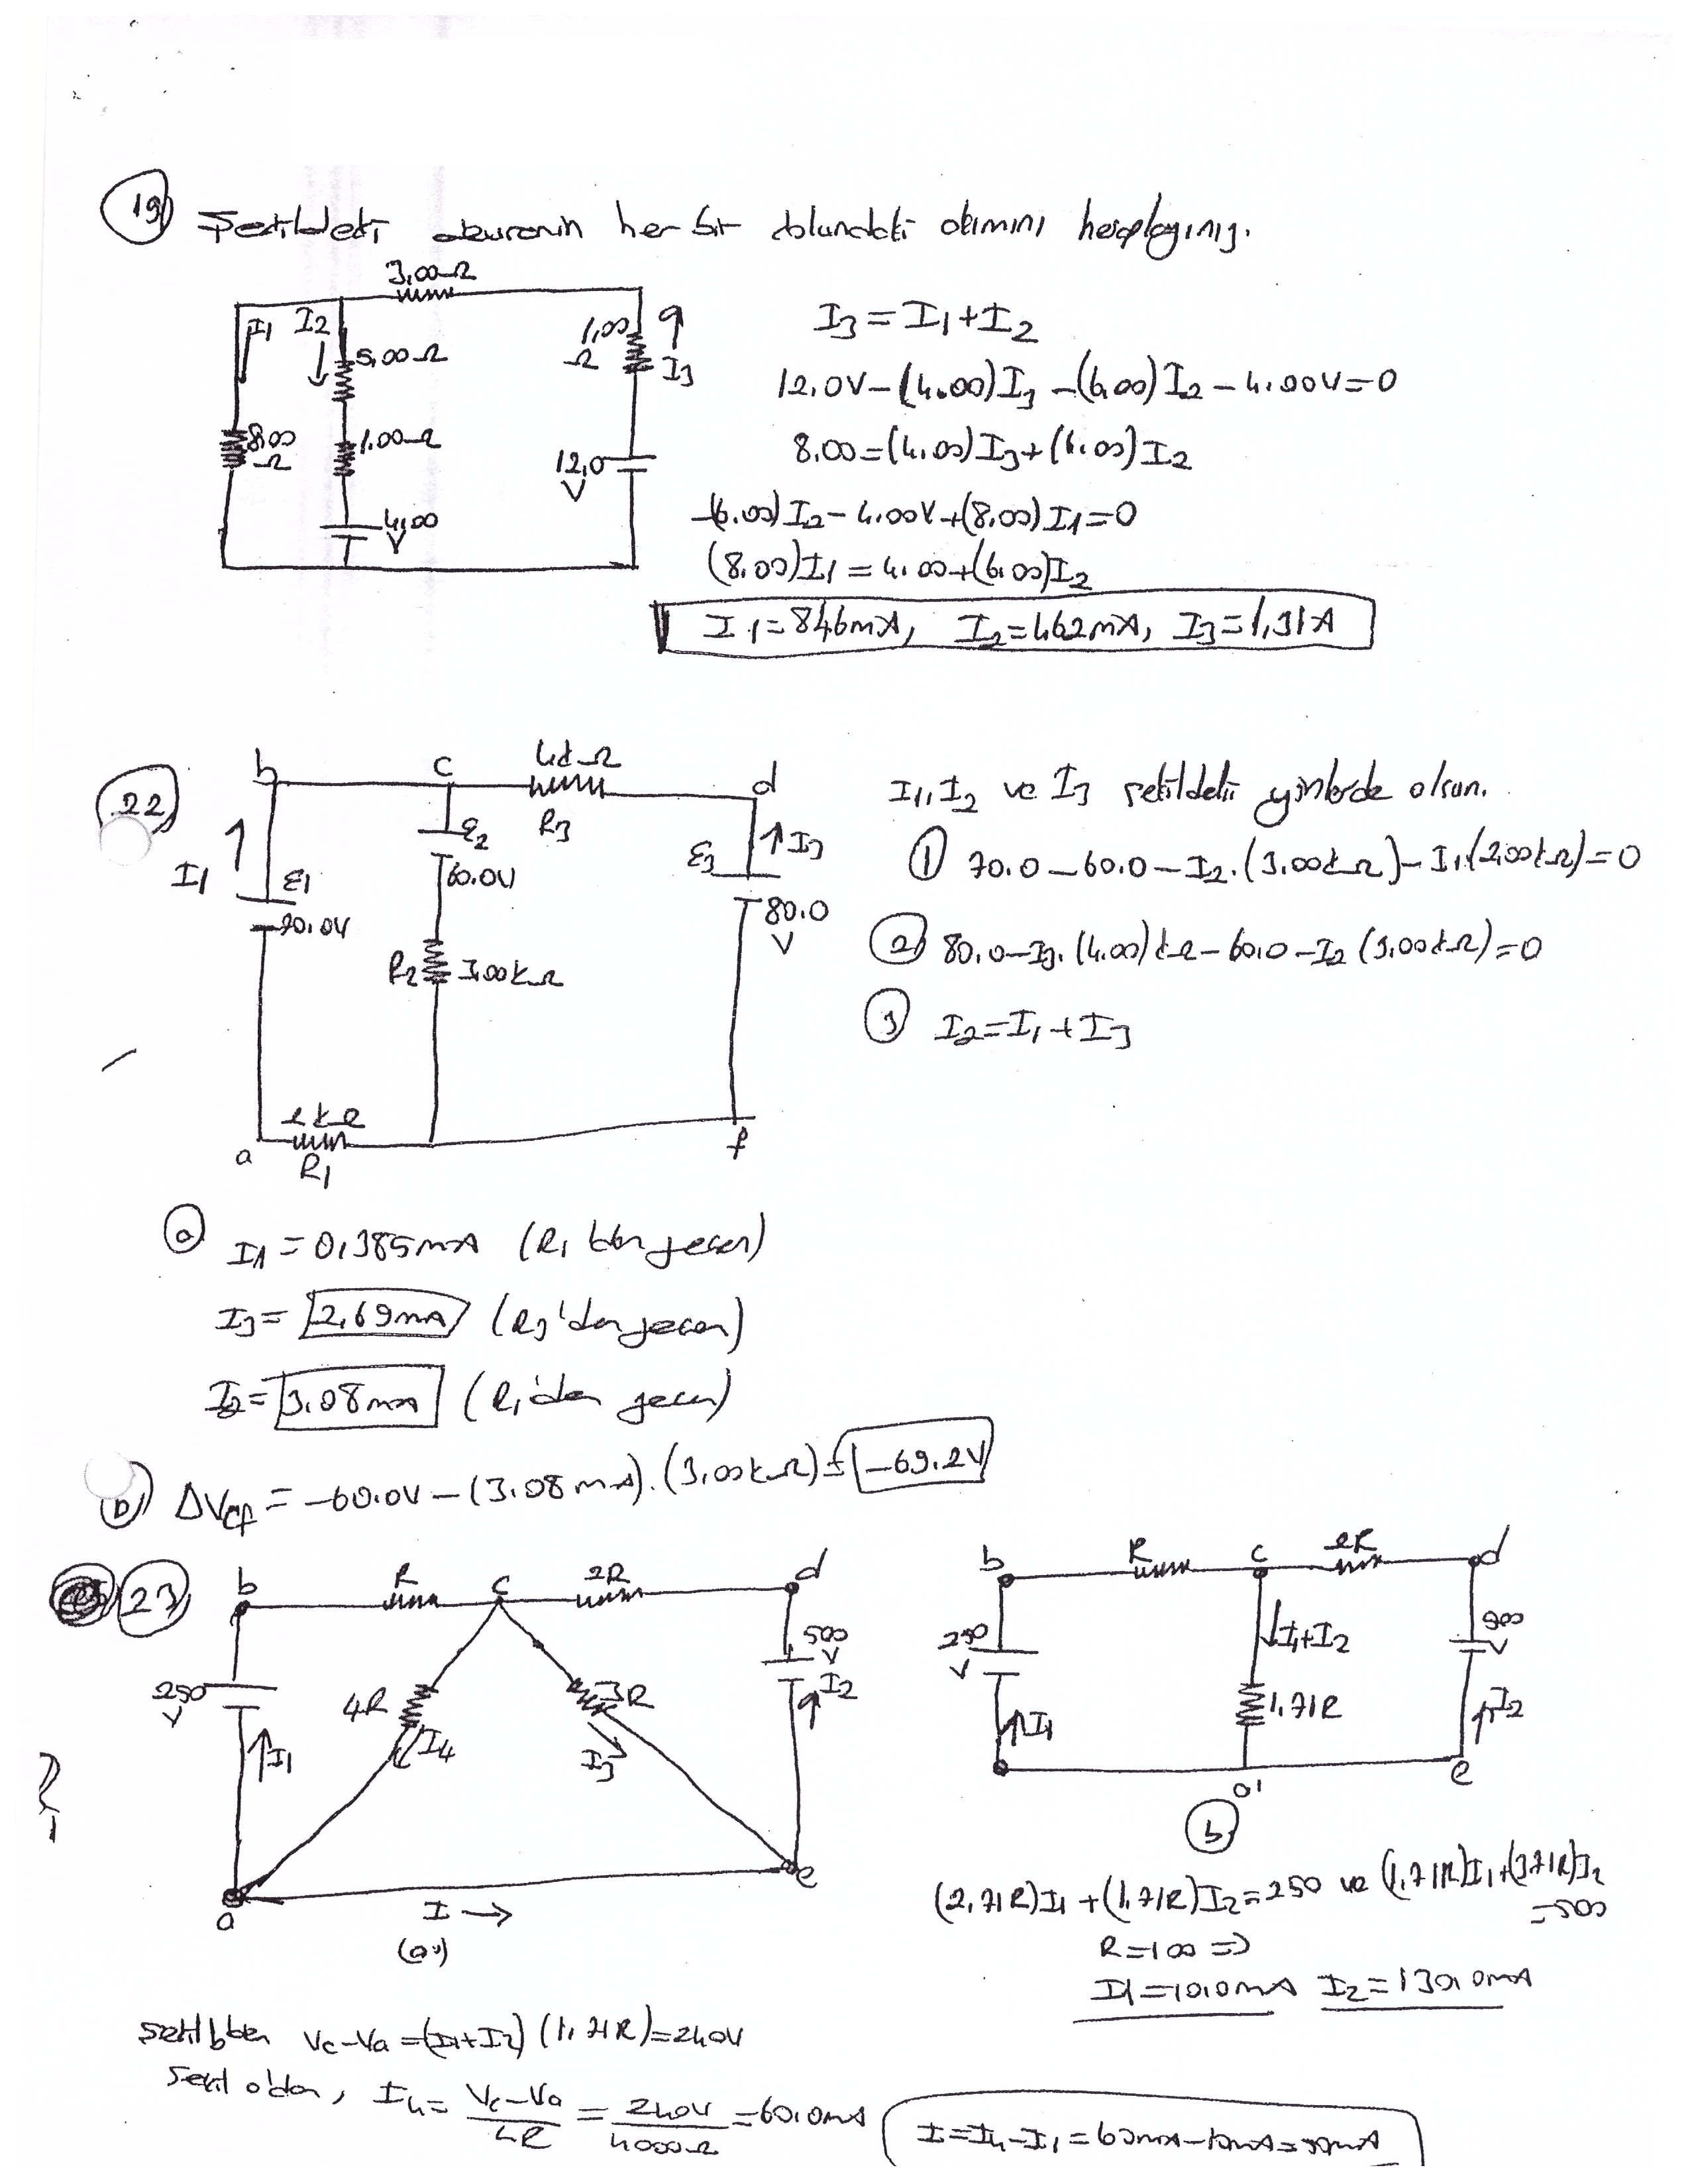 19 Şekildeki devrenin her bir kolundaki akımını hesaplayınız.
3,00Ω
I1 I2 5,00Ω 1,00Ω I3
8,00Ω 1,00Ω 12,0V
4,00V
I3=I1+I2
12,0V-(4.00)I3-(6,00)I2-4.00V=0
8,00=(4,00)I3+(6,00)I2
-(6,00)I2-4,00V+(8,00)I1=0
(8,00)I1=4,00+(6,00)I2
I1=846mA, I2=462mA, I3=1,31A
22
b c 4kΩ d
R3
I1 ε1 70,0V
ε2 60.0V
ε3 80.0V I3
R2 3,00kΩ
2kΩ
a R1 f
I1, I2 ve I3 şekildeki yönlerde olsun.
1 70.0-60.0-I2.(3,00kΩ)-I1.(2,00kΩ)=0
2 80,0-I3.(4,00)kΩ-60,0-I2(3,00kΩ)=0
3 I2=I1+I3
a I1=0,385mA (R1'den geçen)
I3=2,69mA (R3'den geçen)
I2=3,08mA (R1'den geçen)
b) ΔVcf=-60.0V-(3.08mA).(3,00kΩ)=-69.2V
23
b R c 2R d
250V 4R 3R 500V
I1 I4 I3 I2
a I→ e
(a)
b R c 2R d
250V I1+I2 500V
I1 1,71R I2
a' e
b
(2,71R)I1+(1,71R)I2=250 ve (1,71R)I1+(3,71R)I2
=500
R=100 ⇒
I1=10,0mA I2=130,0mA
Şekil b'den Vc-Va=(I1+I2)(1,71R)=240V
Şekil a'dan, I4=Vc-Va/4R=240V/4000Ω=60,0mA
I=I4-I1=60mA-10mA=50mA